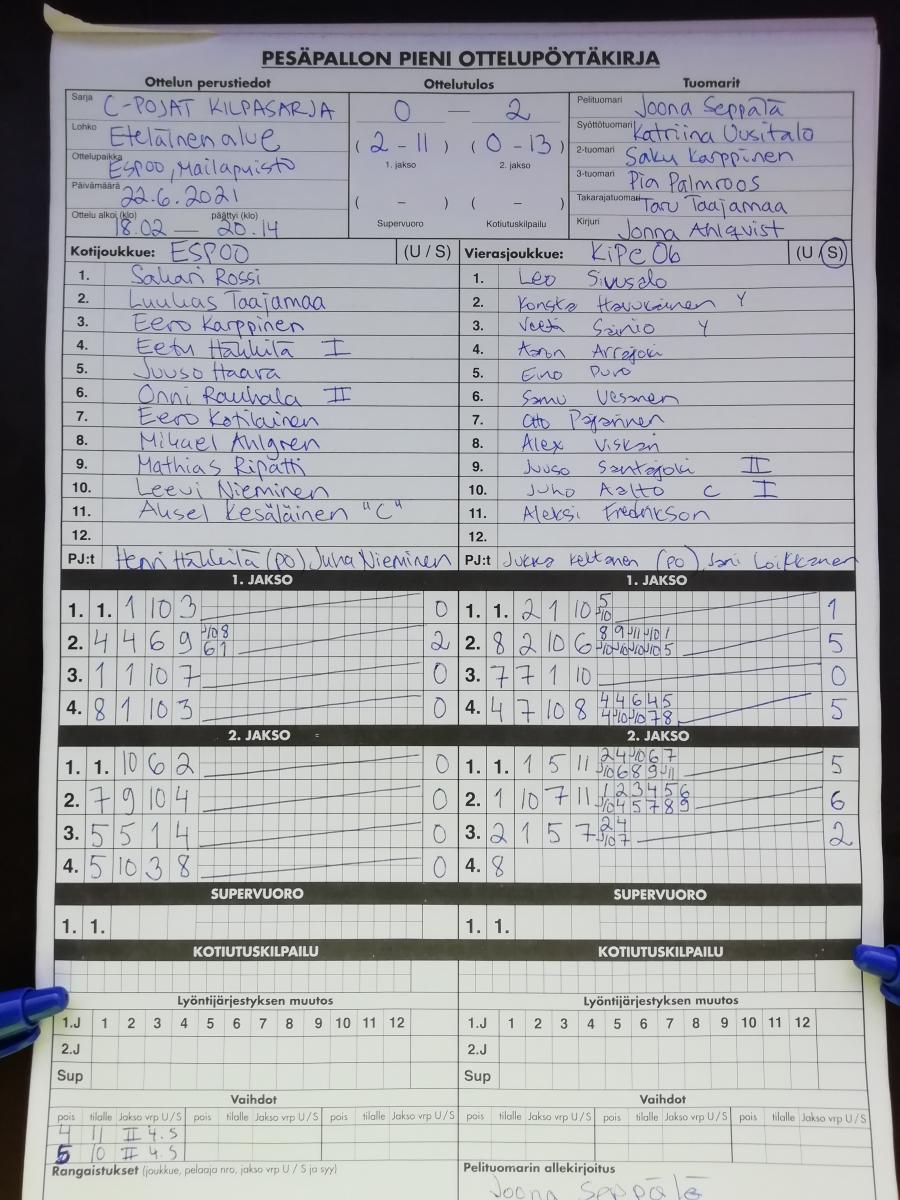 PESÄPALLON PIENI OTTELUPÖYTÄKIRJA
Ottelun perustiedot Ottelutulos Tuomarit
Sarja C-POJAT KILPASARJA
Lohko Eteläinen alue
Ottelupaikka ESPOO, Mailapuisto
Päivämäärä 22.6.2021
Ottelu alkoi (klo) päättyi (klo)
18.02 — 20.14
0 — 2
( 2 - 11 ) ( 0 - 13 )
1. jakso 2. jakso
( - ) ( - )
Supervuoro Kotiutuskilpailu
Pelituomari Joona Seppälä
Syöttötuomari Katriina Uusitalo
2-tuomari Saku Karppinen
3-tuomari Pia Palmroos
Takarajatuomari Taru Taajamaa
Kirjuri Jonna Ahlqvist
Kotijoukkue: ESPOO (U / S)
1. Sakari Rossi
2. Luukas Taajamaa
3. Eero Karppinen
4. Eetu Häkkilä I
5. Juuso Haara
6. Onni Rauhala II
7. Eero Kotilainen
8. Mikael Ahlgren
9. Mathias Ripatti
10. Leevi Nieminen
11. Aksel Kesäläinen "C"
12.
PJ:t Henri Häkkilä (PO), Juha Nieminen
Vierasjoukkue: KiPe 06 (U / S)
1. Leo Sivusalo
2. Konsta Havukainen Y
3. Veeti Sainio Y
4. Aaron Arrajoki
5. Eino Puro
6. Samu Vesanen
7. Otto Pajarinen
8. Alex Viskari
9. Juuso Santajoki II
10. Juho Aalto C I
11. Aleksi Fredrikson
12.
PJ:t Jukka (PO), Jani Loikkanen
1. JAKSO
1. 1. 1 10 3 0
2. 4 4 6 9 2
3. 1 1 10 7 0
4. 8 1 10 3 0
2. JAKSO
1. 1. 10 6 2 0
2. 7 9 10 4 0
3. 5 5 1 4 0
4. 5 10 3 8 0
SUPERVUORO
1. 1.
KOTIUTUSKILPAILU
1. JAKSO
1. 1. 2 1 10 1
2. 8 2 10 6 5
3. 7 7 1 10 0
4. 4 7 10 8 5
2. JAKSO
1. 1. 1 5 11 5
2. 1 10 7 11 6
3. 2 1 5 7 2
4. 8
SUPERVUORO
1. 1.
KOTIUTUSKILPAILU
Lyöntijärjestyksen muutos
1.J 1 2 3 4 5 6 7 8 9 10 11 12
2.J
Sup
Lyöntijärjestyksen muutos
1.J 1 2 3 4 5 6 7 8 9 10 11 12
2.J
Sup
Vaihdot
pois tilalle Jakso vrp U / S pois tilalle Jakso vrp U / S pois tilalle Jakso vrp U / S
4 11 II 4.S
5 10 II 4.S
Vaihdot
pois tilalle Jakso vrp U / S pois tilalle Jakso vrp U / S pois tilalle Jakso vrp U / S
Rangaistukset (joukkue, pelaaja nro, jakso vrp U / S ja syy)
Pelituomarin allekirjoitus
Joona Seppälä